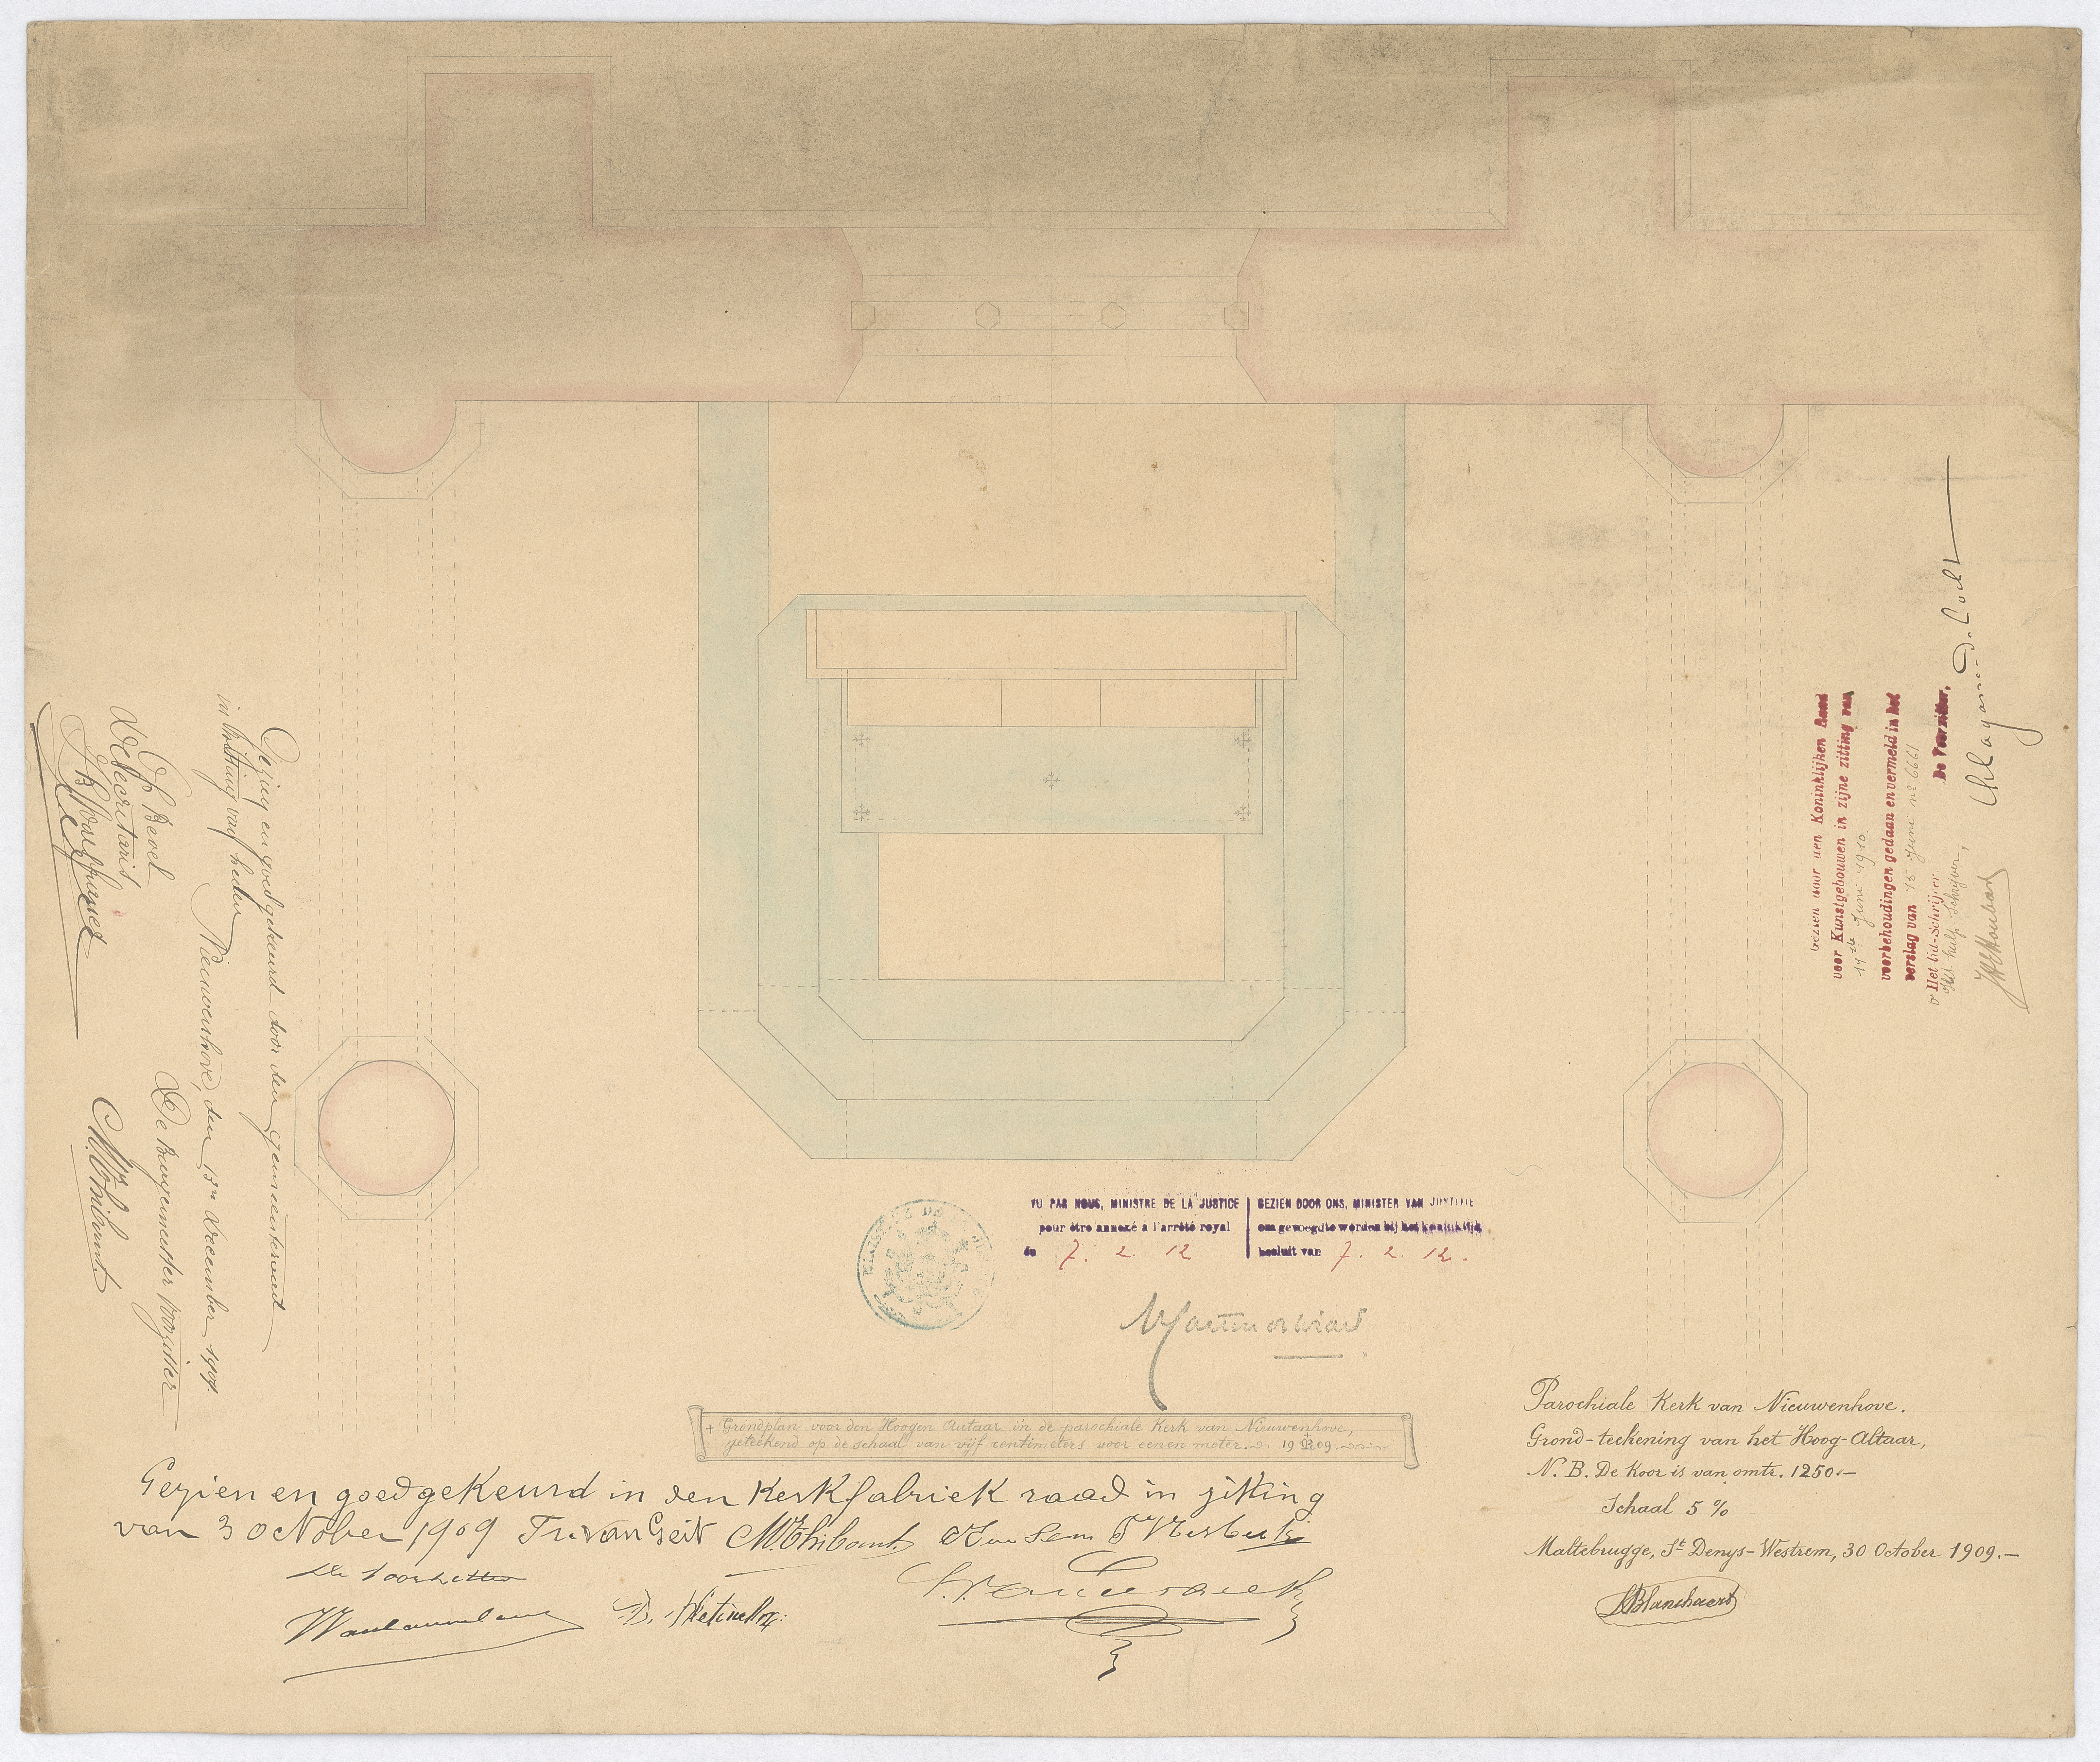 Gezien en goedgekeurd door den gemeenteraad
in zitting van heden
Nieuwenhove, den 13en December 1909.
Op Bevel
De Secretaris
De Burgemeester Voorzitter
Mrs Thibaut.
Gezien door den Koninklijken Raad
voor Kunstgebouwen in zijne zitting van
11de Juni 1910.
voorbehoudingen gedaan en vermeld in het
verslag van 15 Juni no 6661
De Voorzitter,
Het lid-Schrijver
Het hulp Schrijver,
MINISTÈRE DE LA JUSTICE
VU PAR NOUS, MINISTRE DE LA JUSTICE
pour être annexé a l'arrêté royal
du 7. 2. 12
GEZIEN DOOR ONS, MINISTER VAN JUSTITIE
om gevoegd te worden bij het koninklijk
besluit van 7. 2. 12.
+ Grondplan voor den Hoogen Autaar in de parochiale Kerk van Nieuwenhove,
geteekend op de schaal van vijf centimeters voor eenen meter. 19 09.
Gezien en goedgekeurd in den Kerkfabriek raad in zitting
van 3 october 1909 Fr. van Geit Mrs Thibaut.
De Voorzitter
Parochiale Kerk van Nieuwenhove.
Grond-teekening van het Hoog-Altaar,
N. B. De Koor is van omtr. 1250.—
Schaal 5 %
Maltebrugge, St Denys-Westrem, 30 October 1909.—
Blanchaert